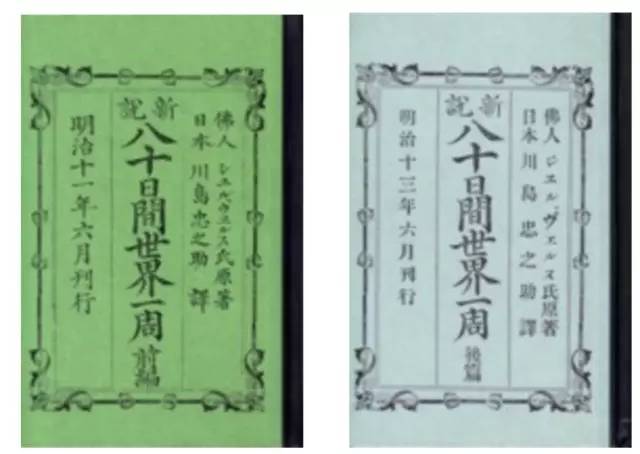 佛人 シエルヴェルス氏原著
日本 川島忠之助 譯
新說
八十日間世界一周 前編
明治十一年六月刊行
佛人 ジエル、ヴェルヌ氏原著
日本 川島忠之助 譯
新說
八十日間世界一周 後篇
明治十三年六月刊行